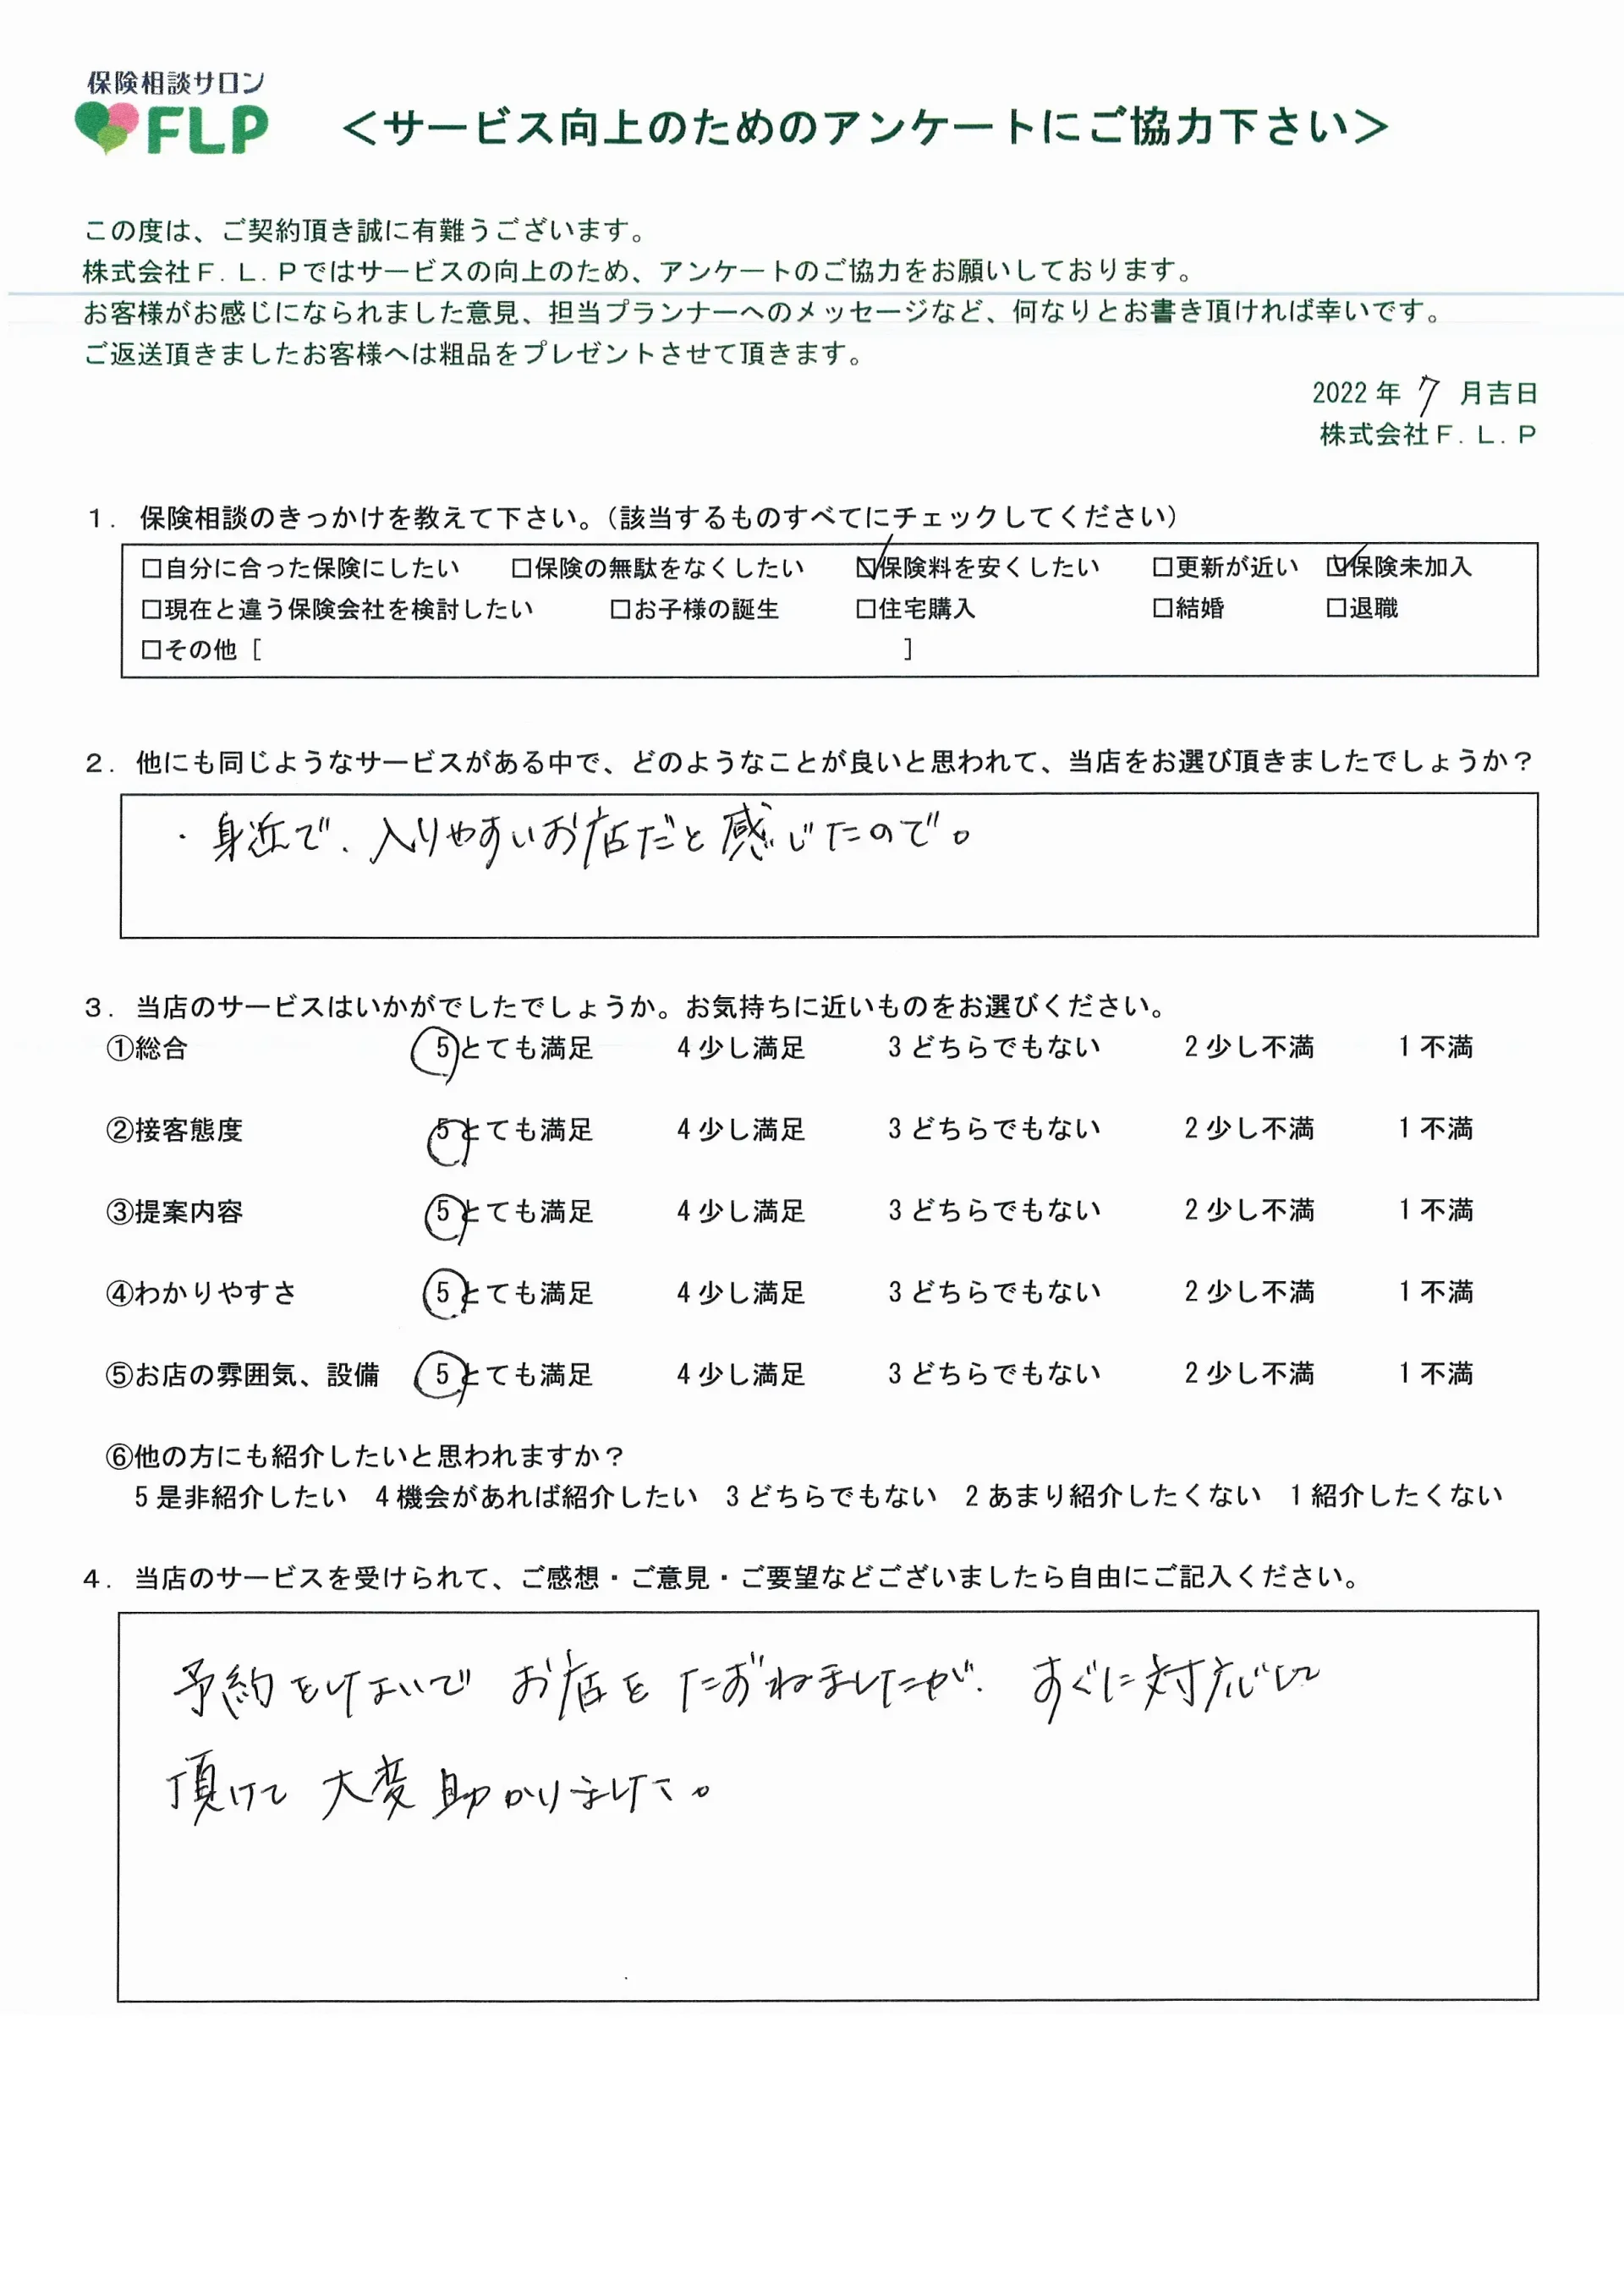 保険相談サロン
FLP
＜サービス向上のためのアンケートにご協力下さい＞
この度は、ご契約頂き誠に有難うございます。
株式会社Ｆ．Ｌ．Ｐではサービスの向上のため、アンケートのご協力をお願いしております。
お客様がお感じになられました意見、担当プランナーへのメッセージなど、何なりとお書き頂ければ幸いです。
ご返送頂きましたお客様へは粗品をプレゼントさせて頂きます。
2022 年 7 月吉日
株式会社Ｆ．Ｌ．Ｐ
１．保険相談のきっかけを教えて下さい。（該当するものすべてにチェックしてください）
□自分に合った保険にしたい □保険の無駄をなくしたい ☑保険料を安くしたい □更新が近い ☑保険未加入
□現在と違う保険会社を検討したい □お子様の誕生 □住宅購入 □結婚 □退職
□その他［ ］
２．他にも同じようなサービスがある中で、どのようなことが良いと思われて、当店をお選び頂きましたでしょうか？
・身近で、入りやすいお店だと感じたので。
３．当店のサービスはいかがでしたでしょうか。お気持ちに近いものをお選びください。
①総合 5 とても満足 4 少し満足 3 どちらでもない 2 少し不満 1 不満
②接客態度 5 とても満足 4 少し満足 3 どちらでもない 2 少し不満 1 不満
③提案内容 5 とても満足 4 少し満足 3 どちらでもない 2 少し不満 1 不満
④わかりやすさ 5 とても満足 4 少し満足 3 どちらでもない 2 少し不満 1 不満
⑤お店の雰囲気、設備 5 とても満足 4 少し満足 3 どちらでもない 2 少し不満 1 不満
⑥他の方にも紹介したいと思われますか？
5 是非紹介したい 4 機会があれば紹介したい 3 どちらでもない 2 あまり紹介したくない 1 紹介したくない
４．当店のサービスを受けられて、ご感想・ご意見・ご要望などございましたら自由にご記入ください。
予約をしないで お店を たずねましたが、すぐに対応して
頂けて 大変 助かりました。